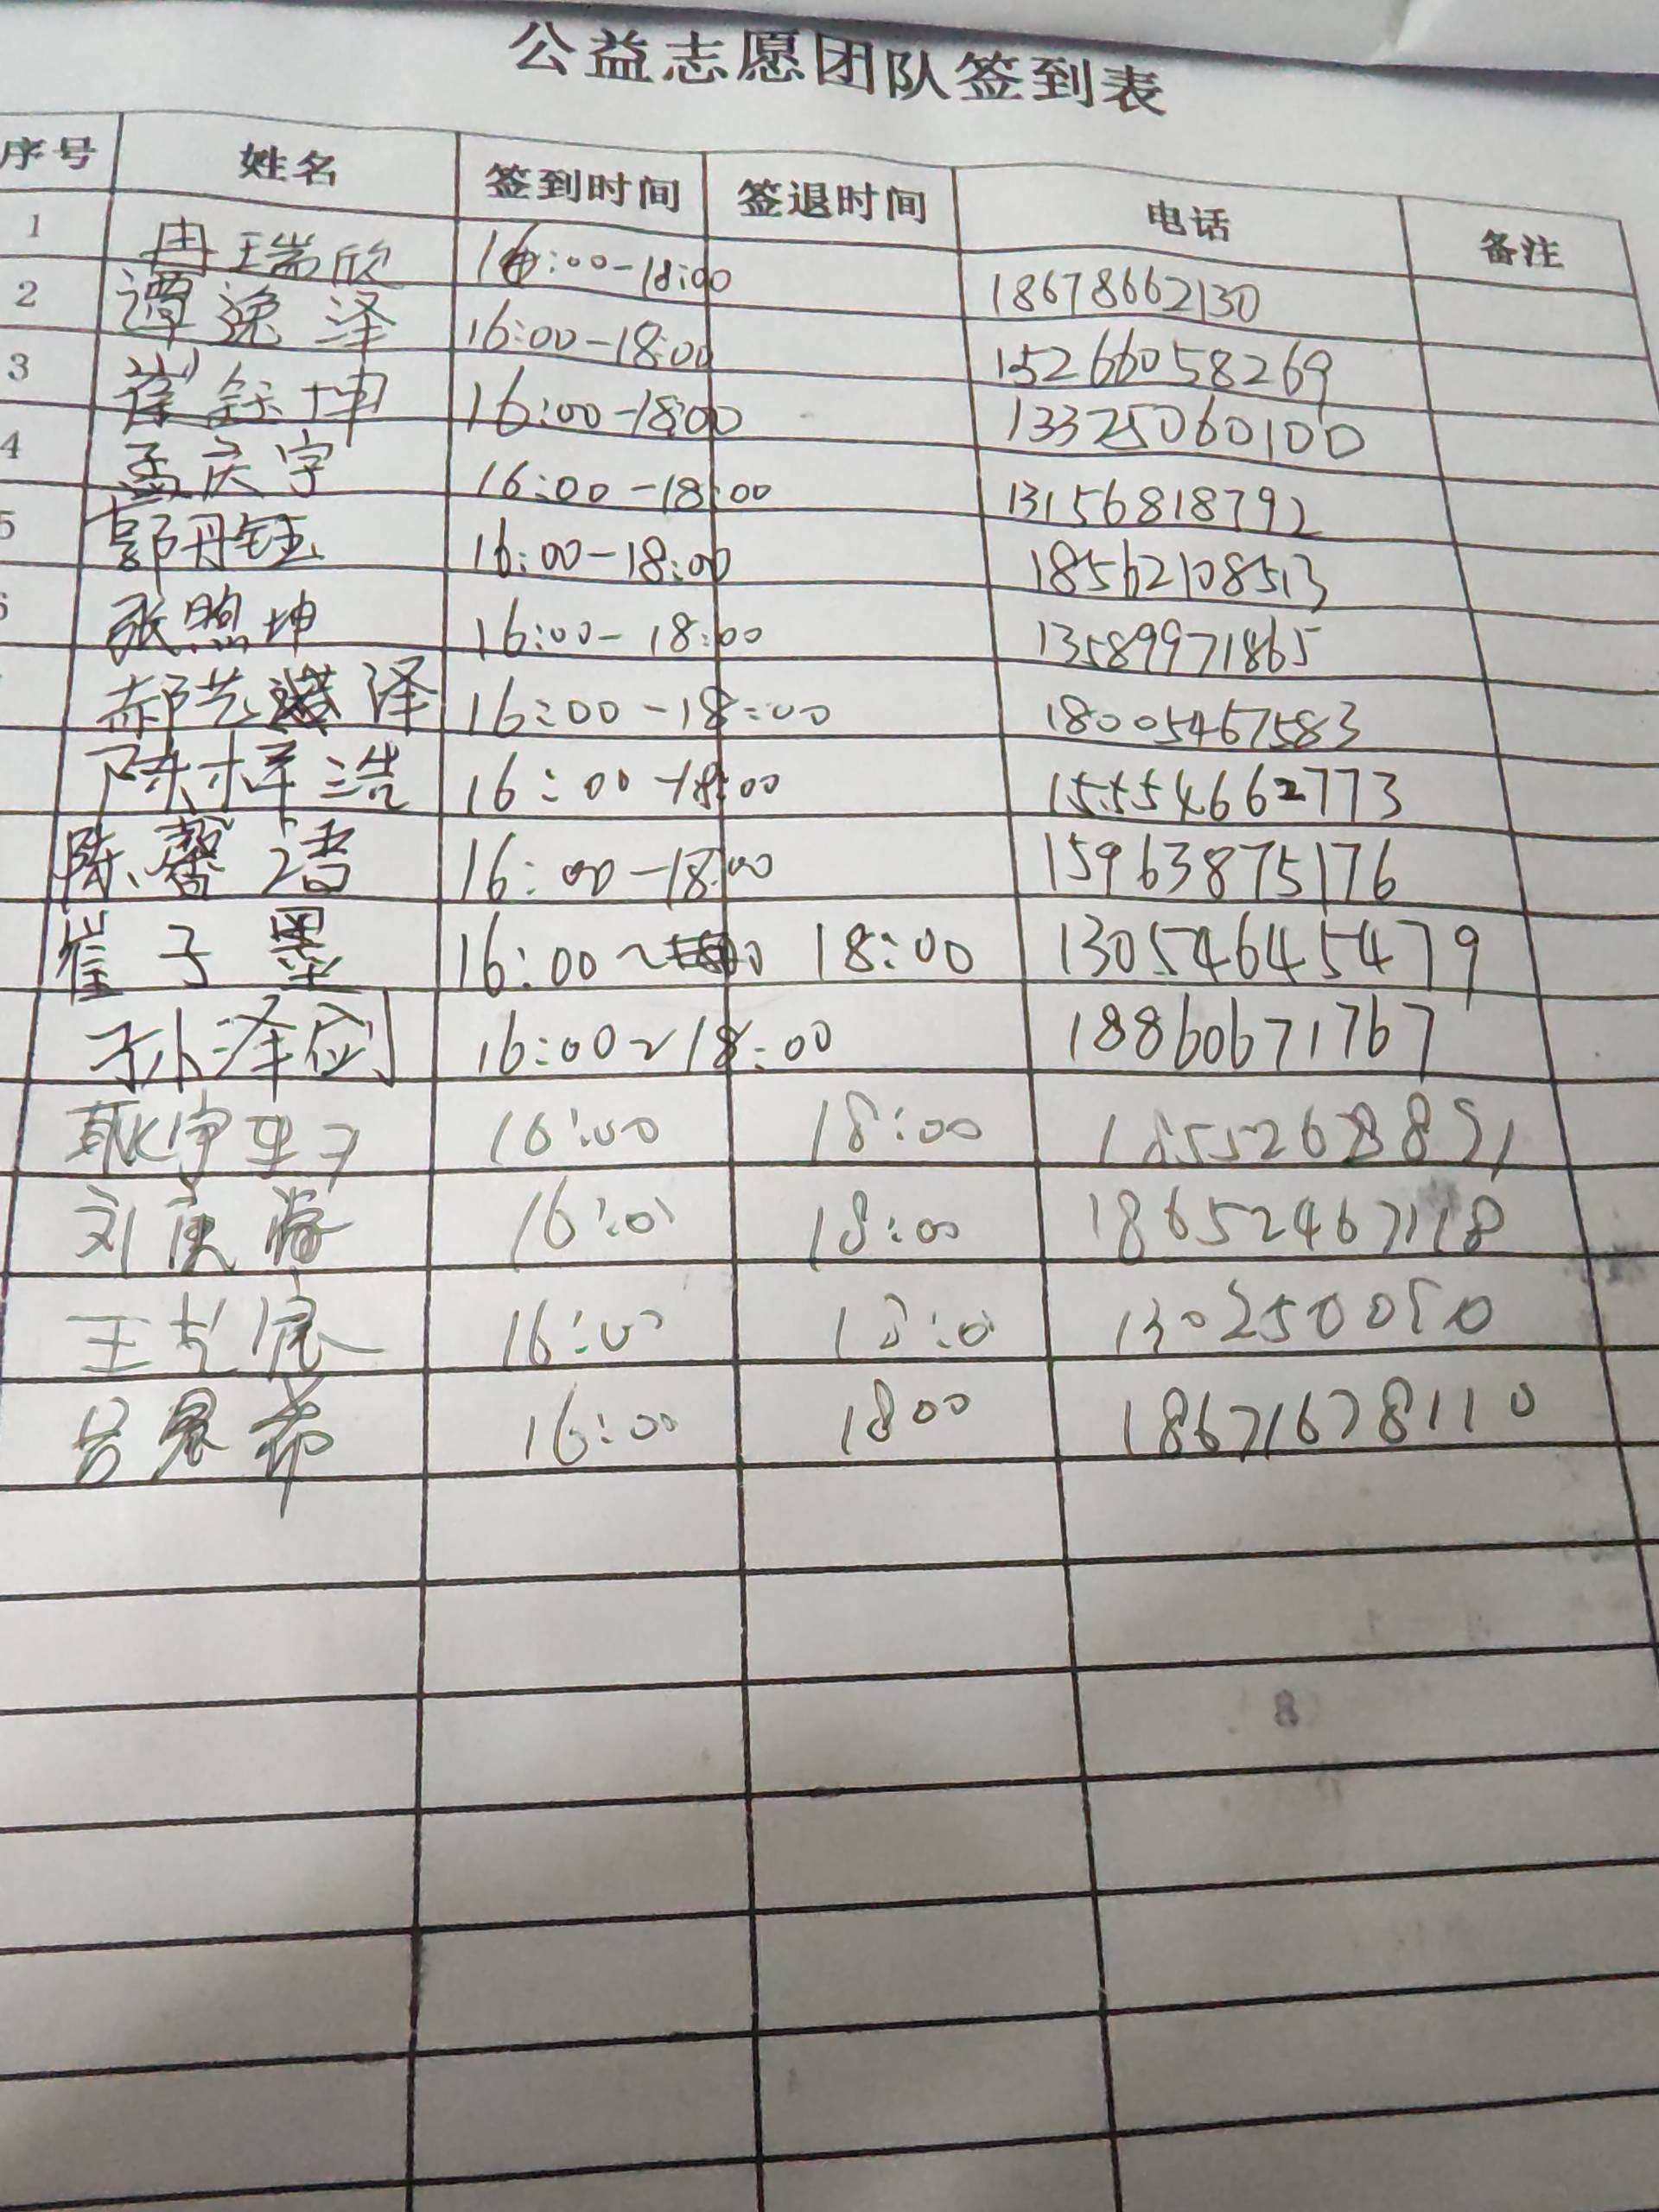 公益志愿团队签到表
序号 姓名 签到时间 签退时间 电话 备注
1 冉瑞欣 16:00-18:00 18678662130
2 谭逸泽 16:00-18:00 15266058269
3 崔钰坤 16:00-18:00 13325060100
4 孟庆宇 16:00-18:00 13156818792
5 郭丹钰 16:00-18:00 18562108513
张煦坤 16:00-18:00 13589971865
郝艺泽 16:00-18:00 18005467583
陈梓浩 16:00-18:00 15554662773
陈馨洁 16:00-18:00 15963875176
崔子墨 16:00~ 18:00 13054645479
孙泽剑 16:00~18:00 18860671767
耿 16:00 18:00
刘庚 16:00 18:00
王 16:00 18:00
吕 希 16:00 1800 18671678110